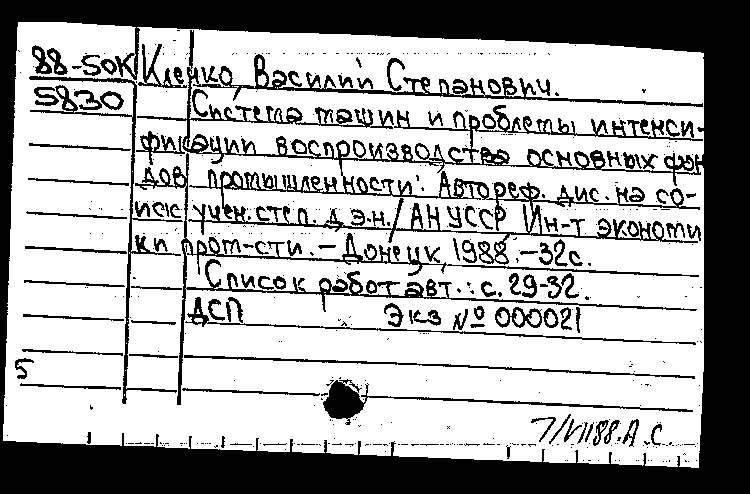 88-50К Кленко, Василий Степанович.
5830 Система машин и проблемы интенси-
фикации воспроизводства основных фон
дов промышленности: Автореф. дис. на со-
иск. учен. степ. д.э.н./ АН УССР, Ин-т экономи
ки пром-сти. – Донецк, 1988. – 32с.
Список работ авт.: с. 29-32.
ДСП Экз № 000021
5
7/VII88. А. С.